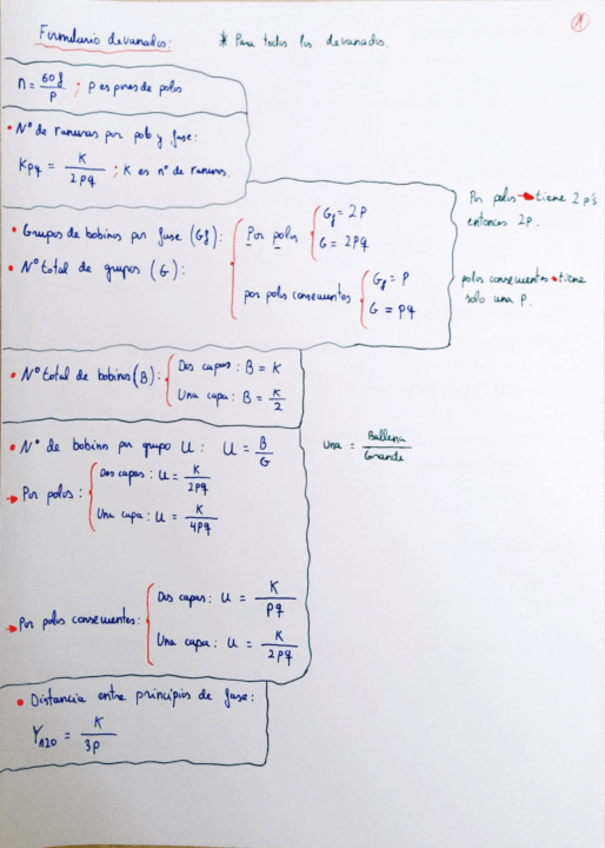 1
Formulario devanados: * Para todos los devanados.
n = 60f / P ; P es pares de polos
• Nº de ranuras por polo y fase:
Kpq = K / 2pq ; K es nº de ranuras.
• Grupos de bobinas por fase (Gf): Por polos { Gf = 2P
G = 2Pq
• Nº total de grupos (G): por polos consecuentes { Gf = P
G = Pq
Por polos → tiene 2 p's
entonces 2P.
polos consecuentes → tiene
solo una P.
• Nº total de bobinas (B): { Dos capas: B = K
Una capa: B = K / 2
• Nº de bobinas por grupo U: U = B / G
Una = Ballena / Grande
→ Por polos: { Dos capas: U = K / 2Pq
Una capa: U = K / 4Pq
→ Por polos consecuentes: { Dos capas: U = K / Pq
Una capa: U = K / 2Pq
• Distancia entre principios de fase:
Y120 = K / 3P